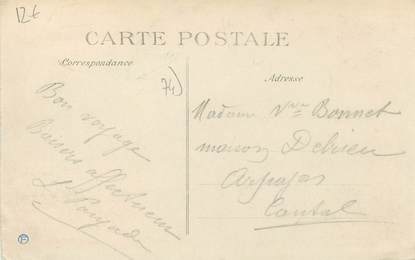 12€
CARTE POSTALE
Correspondance
Adresse
74)
Bon voyage
Baisers affectueux
Madame Vve Bonnet
maison Debrieu
Arpajon
Cantal